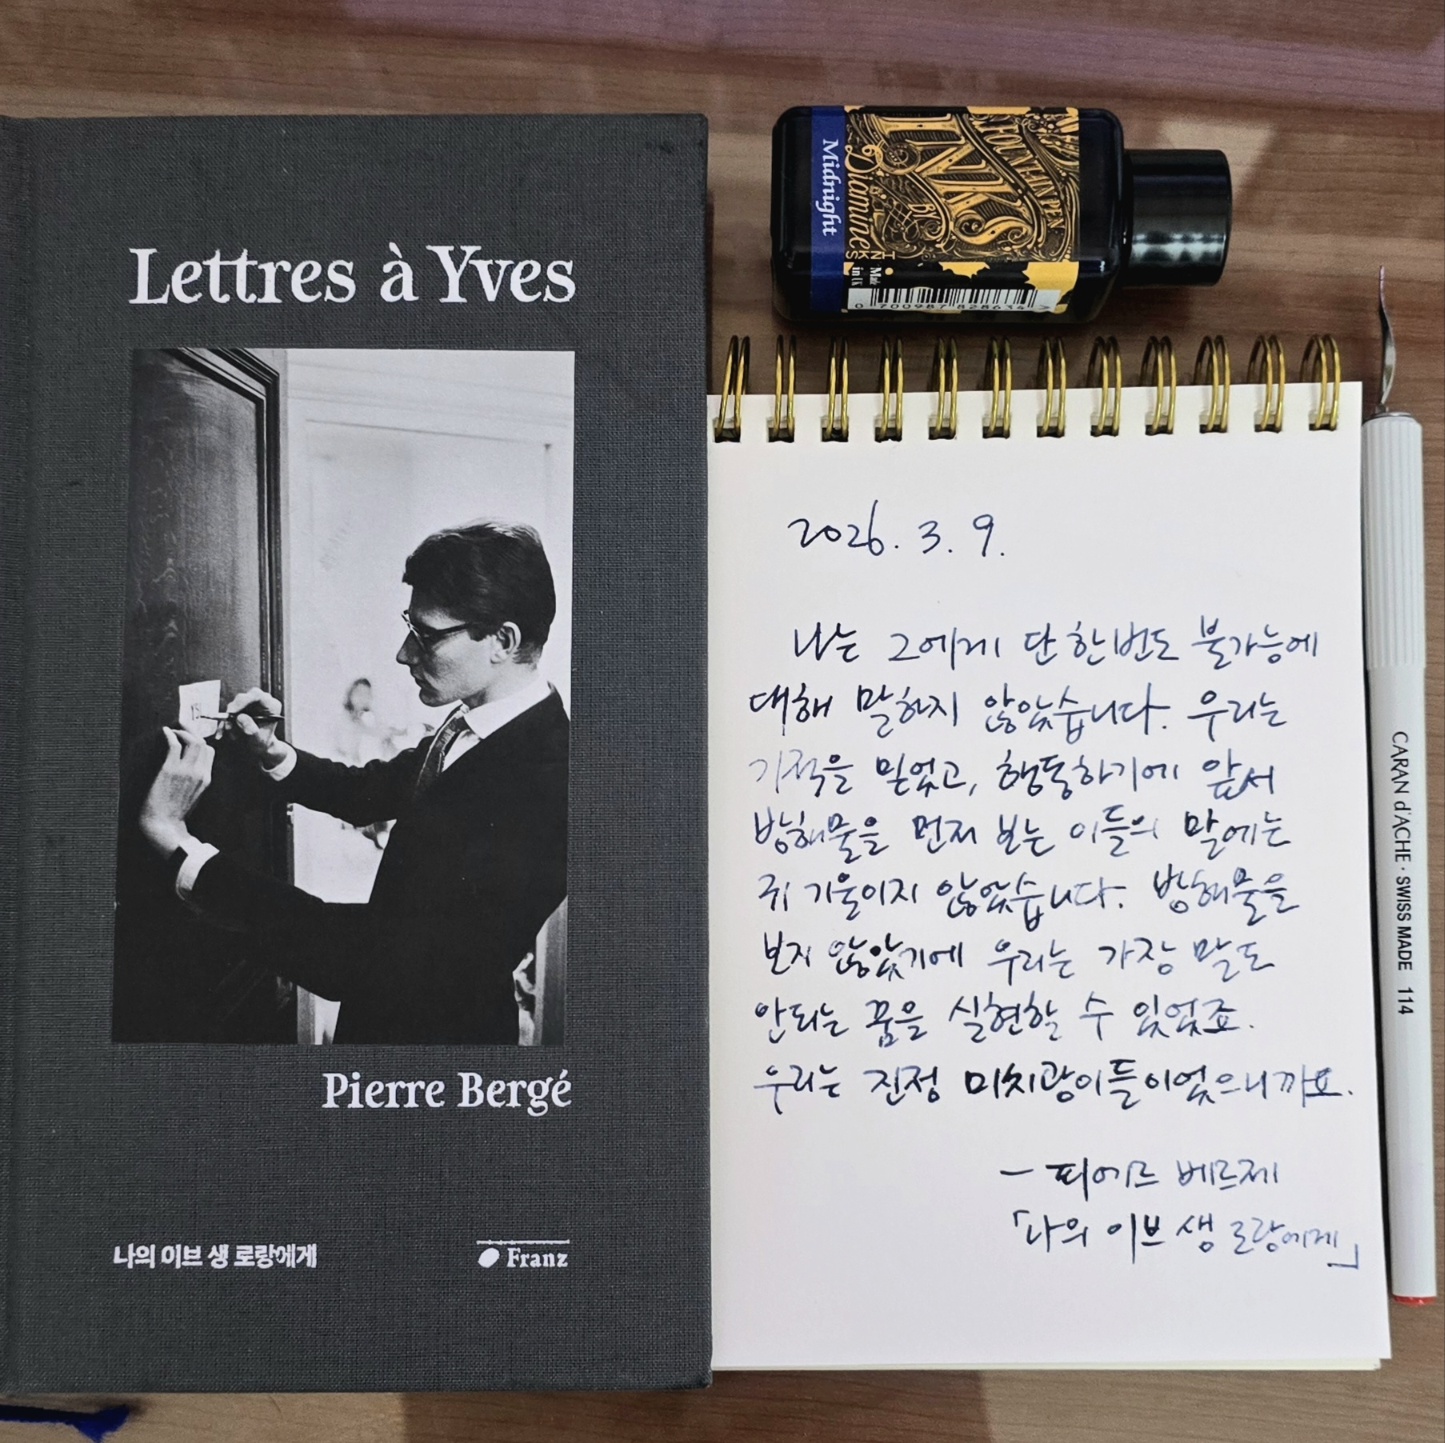 Lettres à Yves
Pierre Bergé
나의 이브 생 로랑에게
Franz
FOUNTAIN PEN
INKS
BY
Diamine
Midnight
Made
in UK
0 700987 828634 >
2026. 3. 9.
나는 그에게 단 한번도 불가능에
대해 말하지 않았습니다. 우리는
기적을 믿었고, 행동하기에 앞서
방해물을 먼저 보는 이들의 말에는
귀 기울이지 않았습니다. 방해물을
보지 않았기에 우리는 가장 말도
안되는 꿈을 실현할 수 있었죠.
우리는 진정 미치광이들이었으니까요.
- 피에르 베르제
「나의 이브 생 로랑에게」
CARAN d'ACHE · SWISS MADE 114